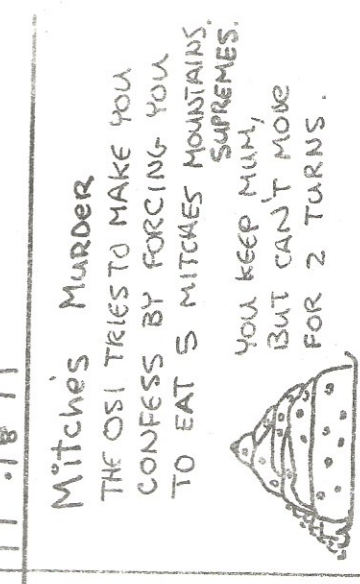 Mitchés Murder
THE OSI TRIES TO MAKE YOU
CONFESS BY FORCING YOU
TO EAT 5 MITCHES MOUNTAINS
SUPREMES.
YOU KEEP MUM,
BUT CAN'T MOVE
FOR 2 TURNS.